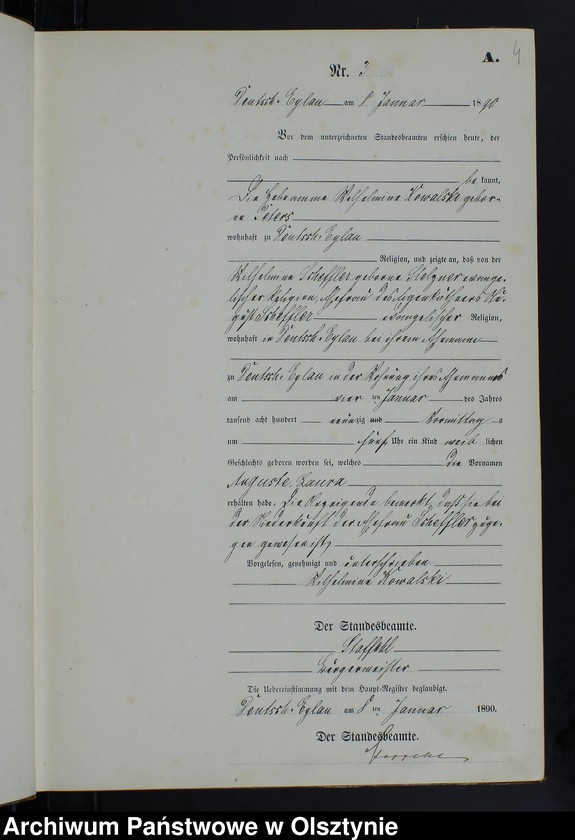 A. 4
Nr. 3
Deutsch-Eylau am 8 Januar 1890
Vor dem unterzeichneten Standesbeamten erschien heute, der
Persönlichkeit nach
be kannt,
Die Hebamme Wilhelmine Kowalski gebor-
ne Peters
wohnhaft zu Deutsch-Eylau
Religion, und zeigte an, daß von der
Wilhelmine Scheffler geborene Stolzner evange-
lischer Religion, Ehefrau des Eigenkäthners Au-
gust Scheffler evangelischer Religion,
wohnhaft in Deutsch-Eylau bei ihrem Ehemanne
zu Deutsch-Eylau in der Wohnung ihres Ehemannes
am vier ten Januar des Jahres
tausend acht hundert neunzig und Vormittag s
um fünf Uhr ein Kind weib lichen
Geschlechts geboren worden sei, welches die Vornamen
Auguste Laura
erhalten habe. Die Anzeigende bemerkt, daß sie bei
der Niederkunft der Ehefrau Scheffler zuge-
gen gewesen ist,
Vorgelesen, genehmigt und unterschrieben
Wilhelmine Kowalski
Der Standesbeamte.
Staffehl
Bürgermeister
Die Uebereinstimmung mit dem Haupt-Register beglaubigt.
Deutsch-Eylau am 8 ten Januar 1890.
Der Standesbeamte.
Archiwum Państwowe w Olsztynie